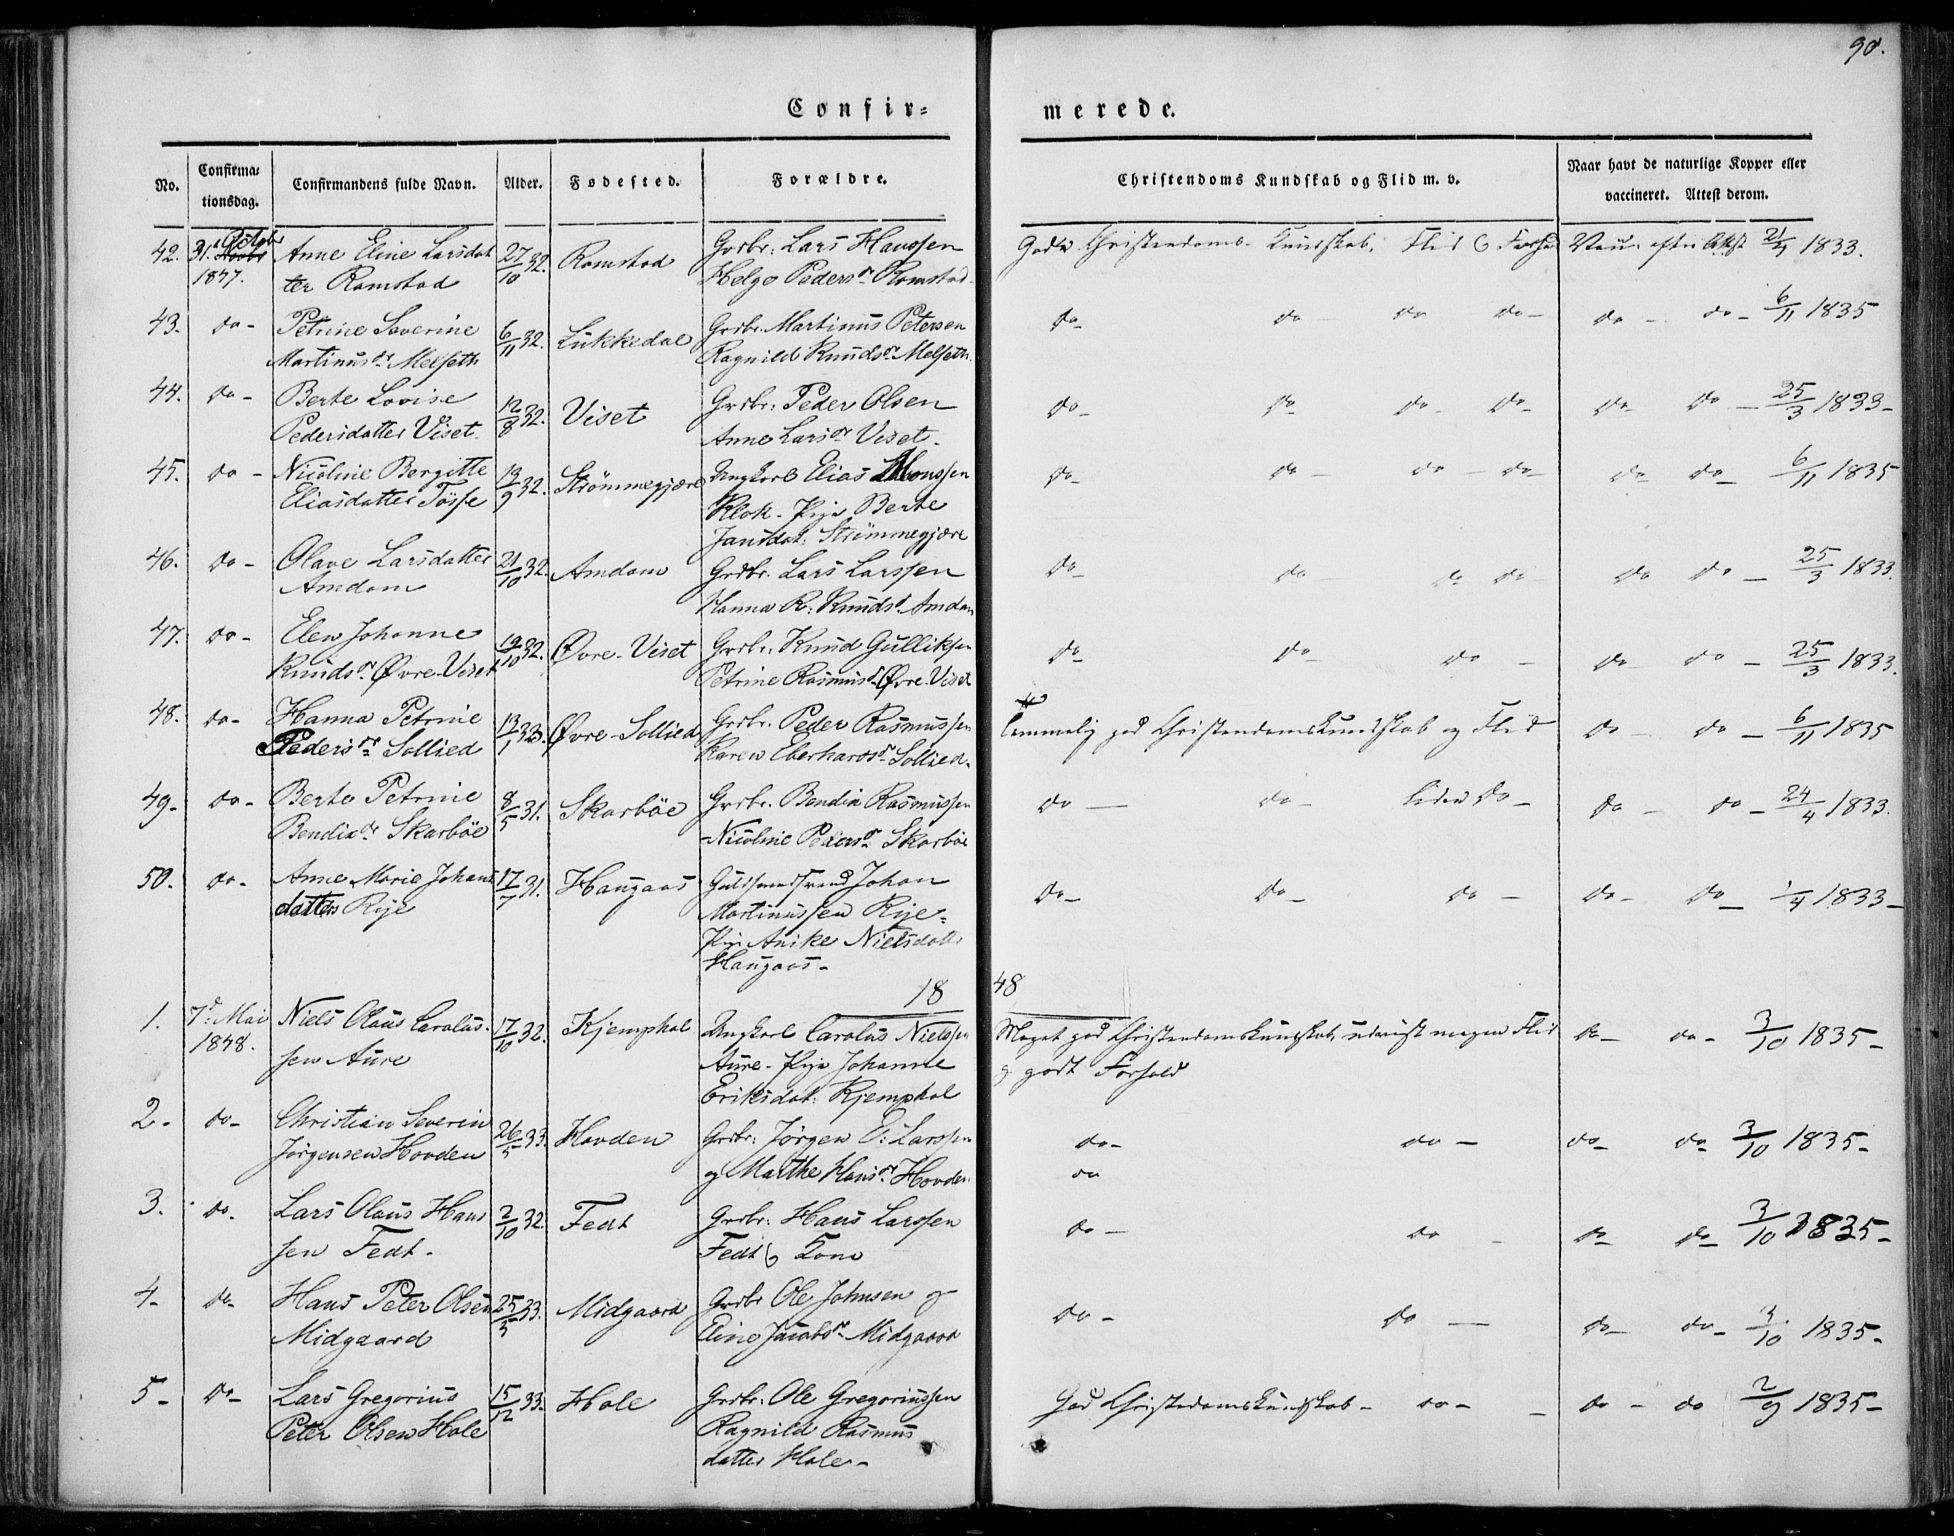 90.
Confir-
merede.
No.
Confirma-
tionsdag.
Confirmandens fulde Navn.
Alder.
Fødested.
Forældre.
Christendoms Kundskab og Flid m. v.
Naar havt de naturlige Kopper eller
vaccineret. Attest derom.
42. 31. October 1847. Anne Eline Larsdat 27/10 32. Romstad Grdbr: Lars Hanssen God Christendoms- Kundskab, Flid Vacc. efter Attest 21/4 1833.
ter Romstad Helge Pedersdr Romstad
43. do- Petrine Severine 6/11 32. Lükkedal Grdbr. Martinus Petersen do- do- do do- do- do- 6/11 1835
Martinusdr Melseth Ragnild Knudsdr Melseth.
44. do- Berte Lovise 12/8 32. Viset Grdbr: Peder Olsen do- do- do- do- do- do- 25/3 1833-
Pedersdatter Viset. Anne Larsdr Viset-
45. do- Nicoline Bergitte 13/9 32. Strømmegjære Ungkarl Elias Monssen do- do- do- do- do do- 6/11 1835
Eliasdatter Tösse Klok- Pige Berte
Jansdat: Strømmegjære
46. do- Olave Larsdatter 21/10 32. Amdam Grdbr. Lars Larssen do- do- do do- do do- 25/3 1833.
Amdam Hanna R: Knudsdr Amdam
47. do- Elen Johanne 19/10 32. Øvre-Viset Grdbr: Knud Gulliksen do- do- do- do- do- 25/3 1833.
Knudsdr Øvre-Viset Petrine Rasmusdr Øvre-Viset
48. do- Hanna Petrine 13/1 33. Øvre-Sollied Grdbr. Peder Rasmussen Temmelig god Christendomskundskab og Flid do- do- 6/11 1835
Pedersdr Sollied Karen Eberhardsdr Sollied.
49- do- Berte Petrine 8/5 31. Skarbøe Grdbr. Bendix Rasmussen do- do- liden do- do- do- 24/4 1833.
Bendixdr Skarböe Nicoline Pedersdr Skarböe
50. do- Anne Marie Johans 17/7 31. Haugaas Guldsmedsvend Johan do- do- do- do- do- 1/4 1833-
datter Rije Martinussen Rije-
Pige Anike Nielsdatter
Haugaas-
18 48
1. 7d Mai 1848. Niels Olaus Carolus- 17/10 32. Kjemphol Ungkarl Carolus Nielssen Meget god Christendomskundskab, udviist megen Flid do- do- 3/10 1835-
sen Aure Aure- Pige Johanne og godt Forhold
Eriksdat: Kjemphol
2- do- Christian Severin 26/5 33. Hovden Grdbr: Jørgen E: Larssen do- do- do- do- 3/10 1835-
Jørgensen Hovden og Marthe Hansdr Hovden do
3. do. Lars Olaus Hans 2/10 32. Fedt Grdbr: Hans Larssen do- do- do- do- 3/10 1835-
sen Fedt- Fedt og Kone
4- do- Hans Peter Olsen 25/3 33. Midgaard Grdbr Ole Johnsen og do- do- do- do- 3/10 1835-
Midgaard Eline Jacobsdr Midgaard
5- do- Lars Gregorius 15/12 33. Hole Grdbr: Ole Gregoriussen God Christedomskundskab- do- do- do 2/9 1835-
Peter Olsen Hole Ragnild Rasmus
datter Hole-